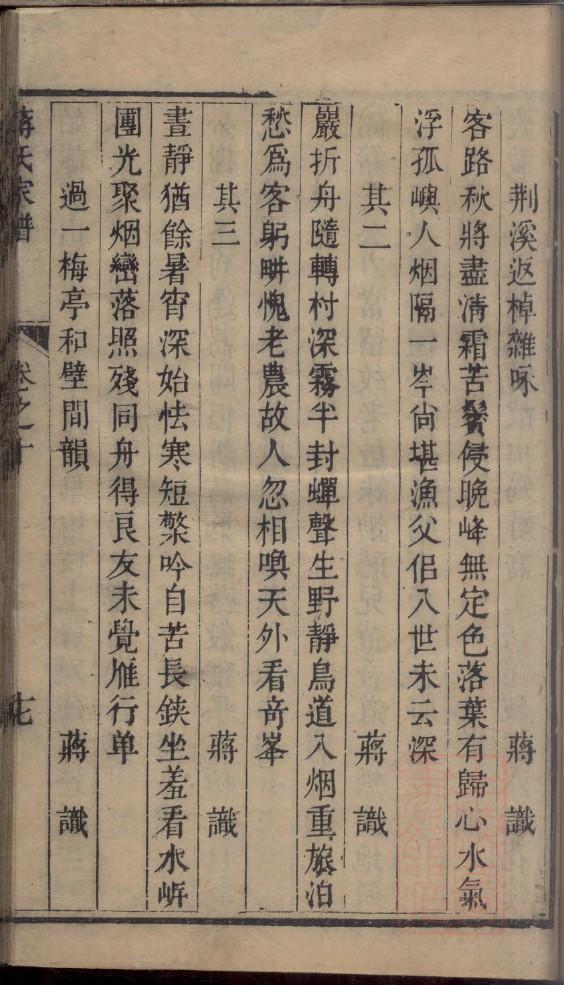 荆溪返棹雜咏　蔣識
客路秋將盡清霜苦鬢侵晚峰無定色落葉有歸心水氣
浮孤嶼人烟隔一岑尙堪漁父侶入世未云深
其二　蔣識
巖折舟隨轉村深霧半封蟬聲生野靜鳥道入烟重旅泊
愁爲客躬畊愧老農故人忽相喚天外看竒峯
其三　蔣識
晝靜猶餘暑宵深始怯寒短檠吟自苦長鋏坐羞看水㟁
團光聚烟巒落照殘同舟得良友未覺雁行单
過一梅亭和壁間韻　蔣識
蔣氏家譜　卷之十　十七